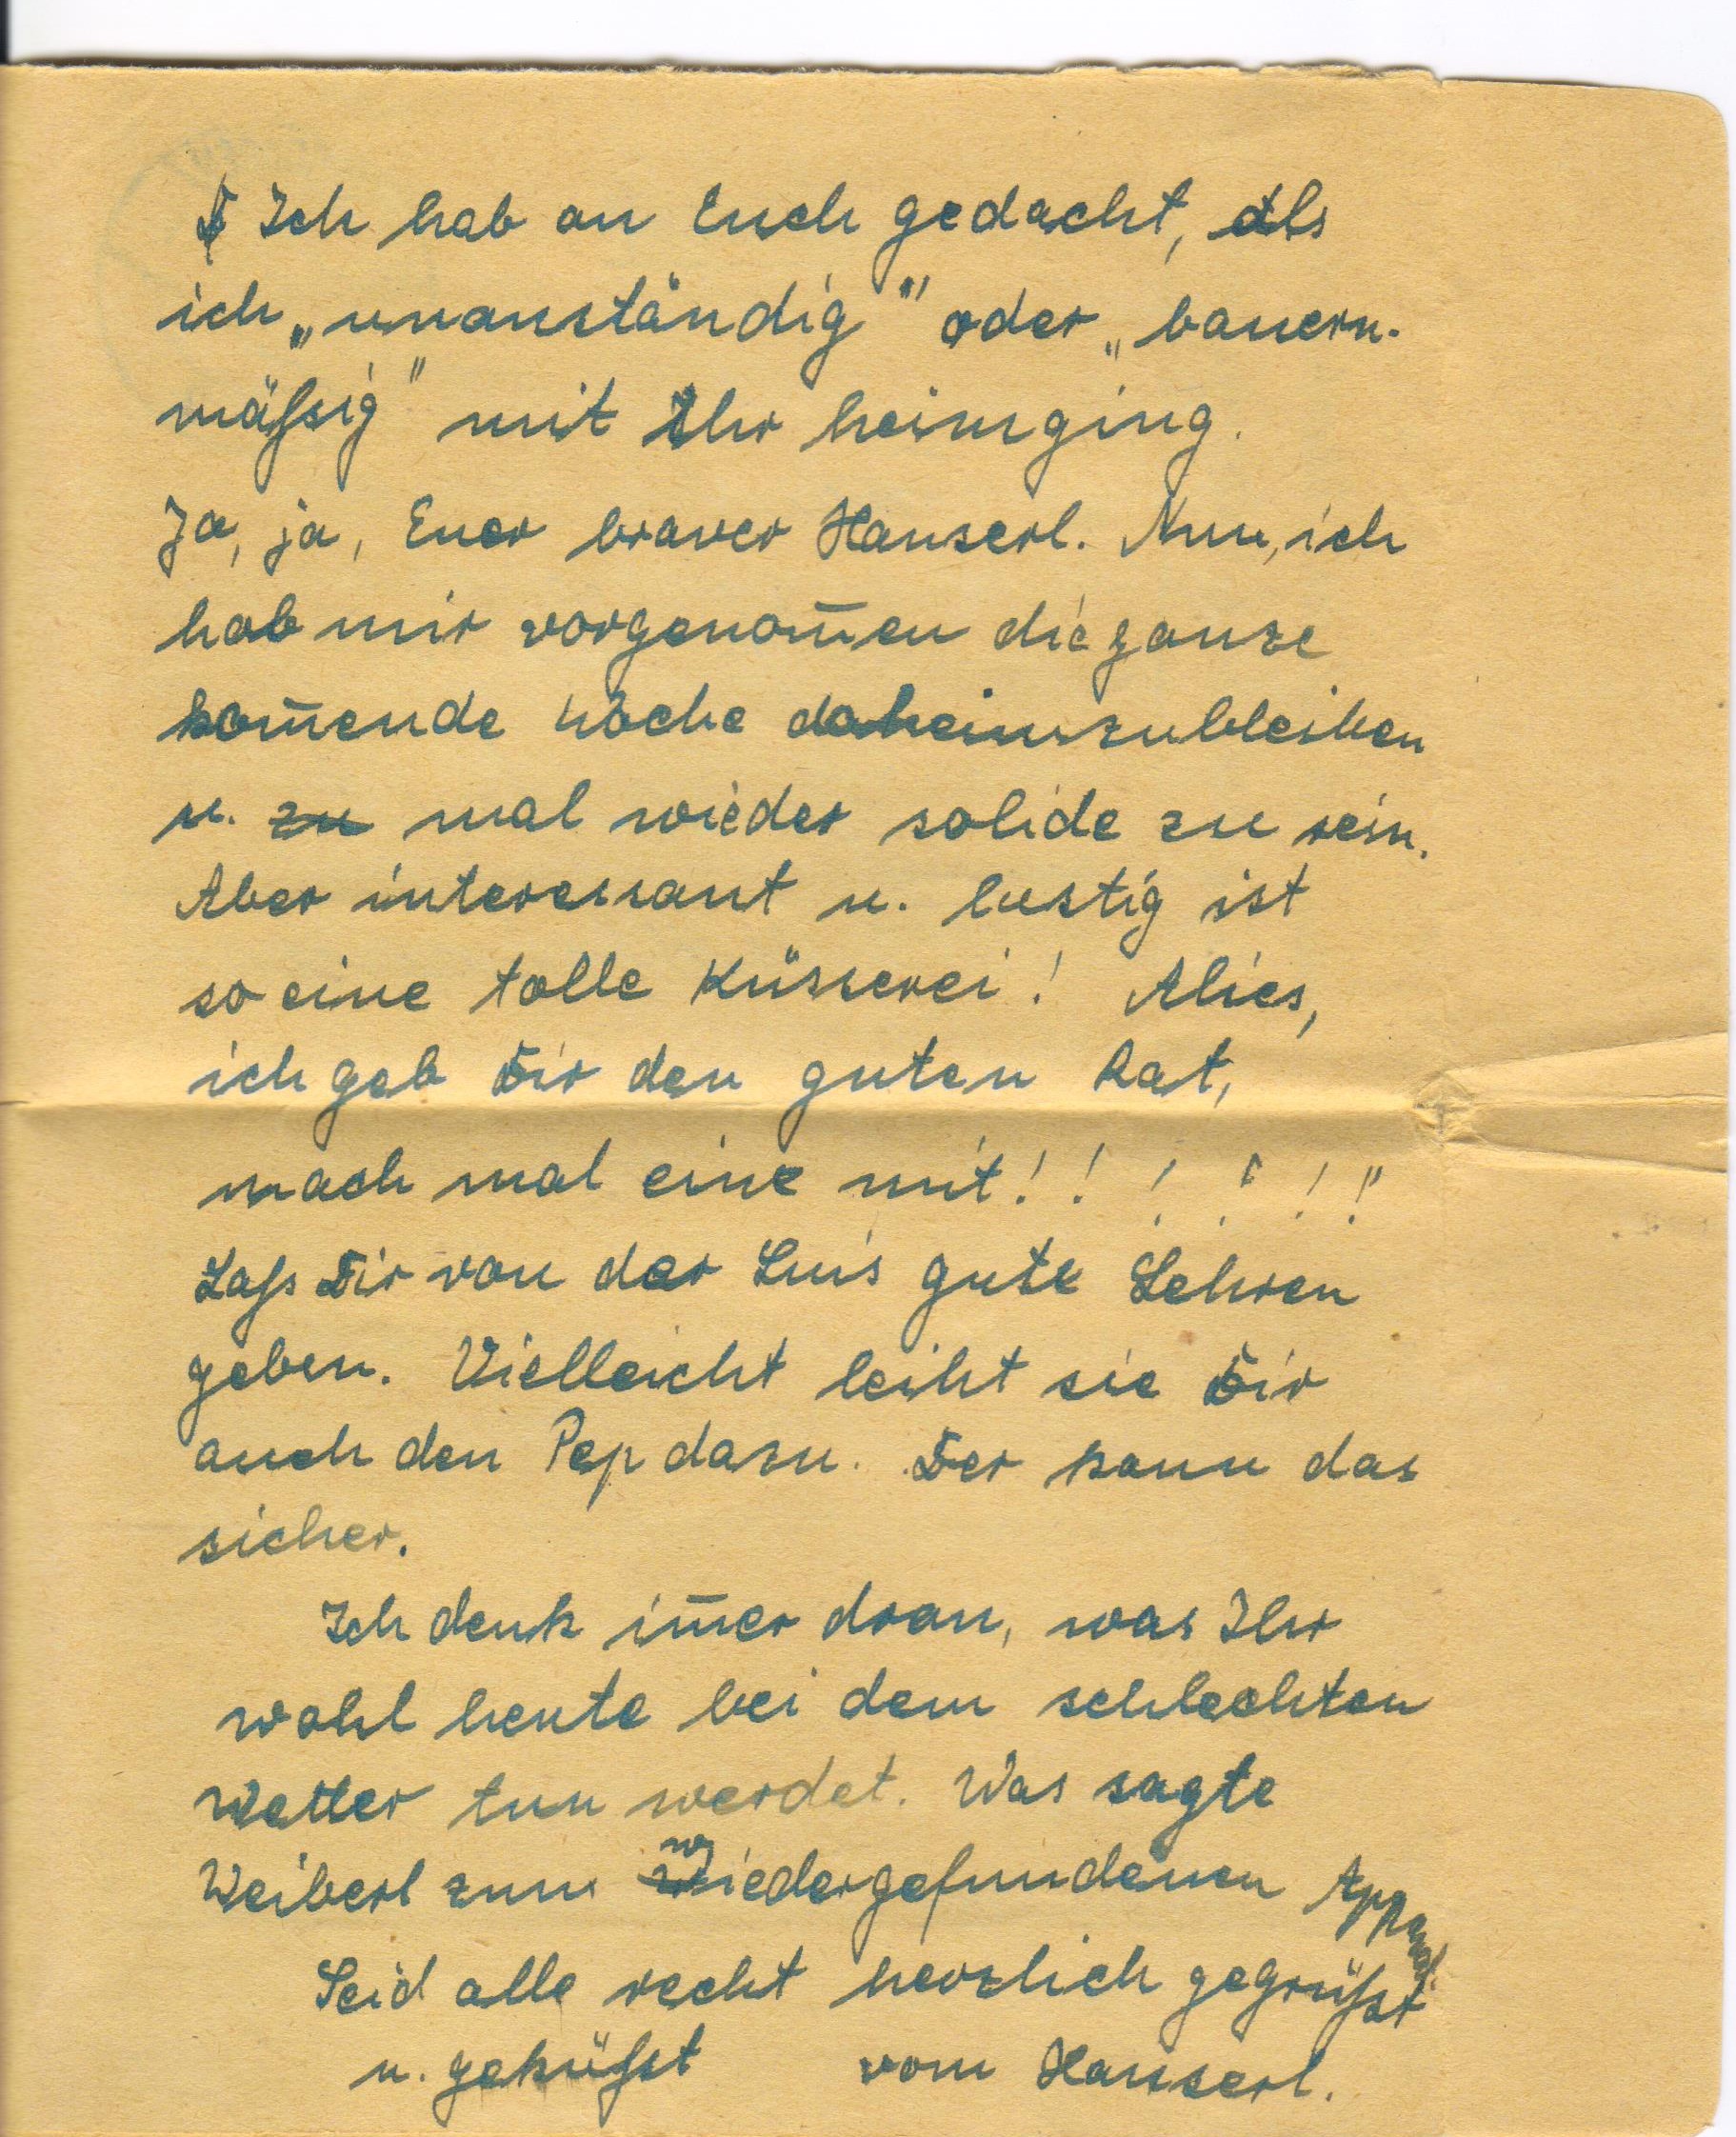 Ich hab an Euch gedacht, als
ich „unanständig" oder „bauern-
mäßig" mit Ihr heimging.
Ja, ja, Euer braver Hanserl. Nun, ich
hab mir vorgenom̅en die ganze
kom̅ende Woche daheimzubleiben
u. zu mal wieder solide zu sein.
Aber interessant u. lustig ist
so eine tolle Küsserei! Alies,
ich geb Dir den guten Rat,
mach mal eine mit!!!!!!
Laß Dir von der Luis gute Lehren
geben. Vielleicht leiht sie Dir
auch den Pep dazu. Der kann das
sicher.
Ich denk im̅er dran, was Ihr
wohl heute bei dem schlechten
Wetter tun werdet. Was sagte
Weiberl zum wiedergefundenen Apparat.
Seid alle recht herzlich gegrüßt
u. geküßt vom Hanserl.